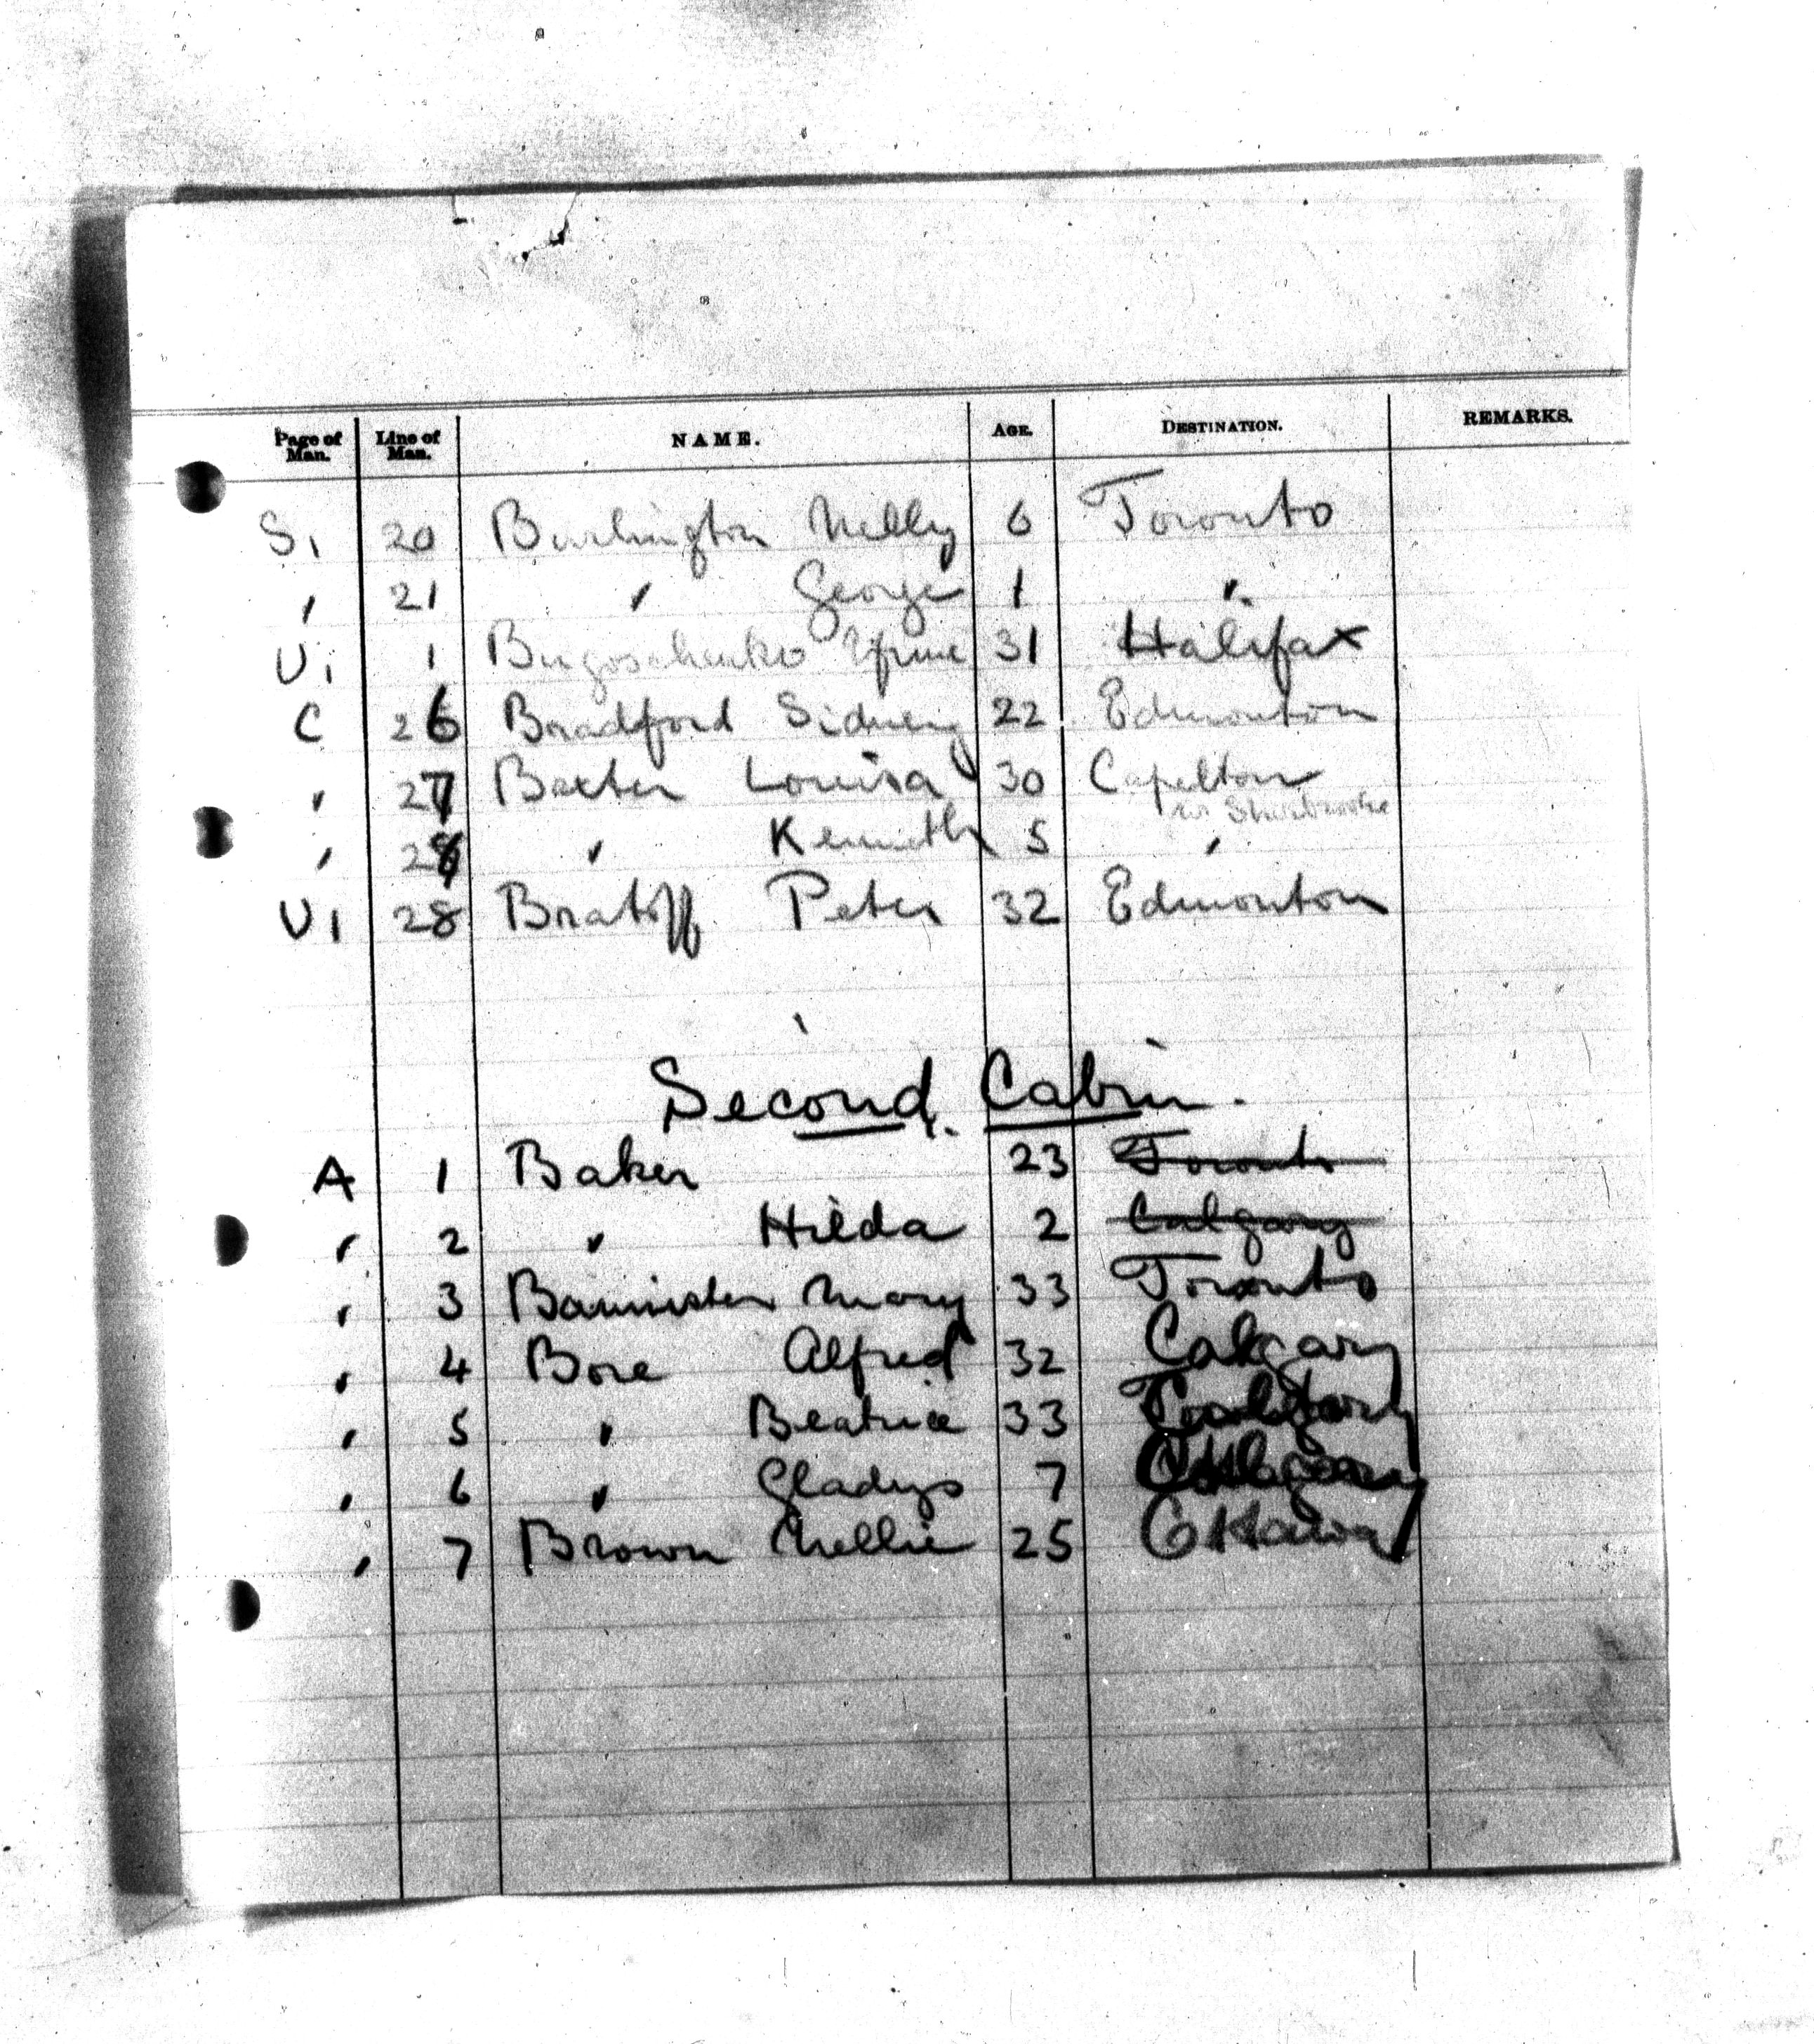 Page of Man. Line of Man. NAME. AGE. DESTINATION. REMARKS.
S1 20 Burlington Nelly 6 Toronto
" 21 " George 1 "
U1 1 31 Halifax
C 26 Bradford Sidney 22 Edmonton
" 27 Baxter Louisa 30 Capelton
nr Sherbrooke
" 28 " Kenneth 5 "
U1 28 Bratoff Peter 32 Edmonton
Second Cabin.
A 1 Baker 23 Toronto
" 2 " Hilda 2 Calgary
" 3 Bannister Mary 33 Toronto
" 4 Bore Alfred 32 Calgary
" 5 " Beatrice 33
" 6 " Gladys 7
" 7 Brown Nellie 25 Ottawa